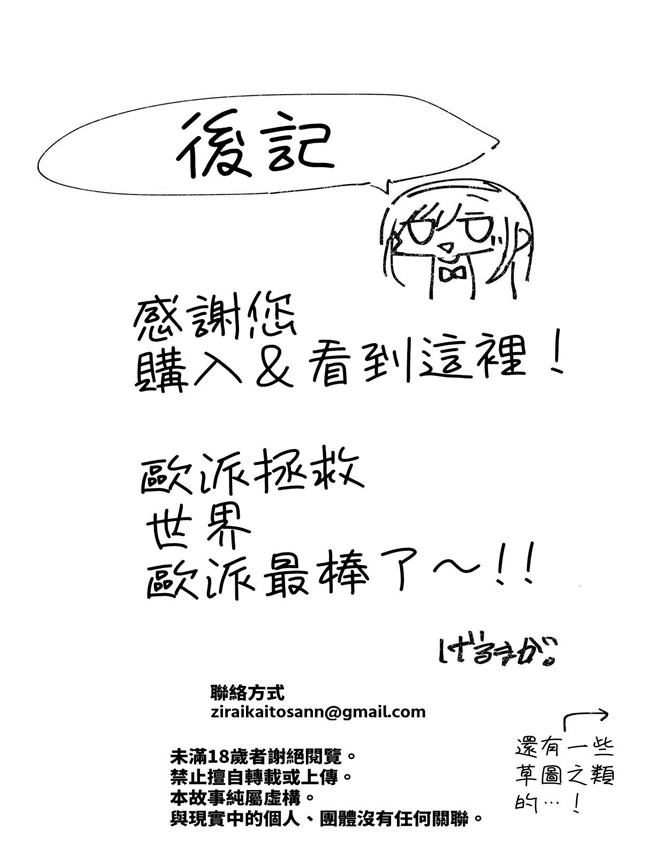 後記
感謝您
購入&看到這裡！
歐派拯救
世界
歐派最棒了～!!
げるまが。
聯絡方式
ziraikaitosann@gmail.com
未滿18歲者謝絕閱覽。
禁止擅自轉載或上傳。
本故事純屬虛構。
與現實中的個人、團體沒有任何關聯。
還有一些
草圖之類
的…！